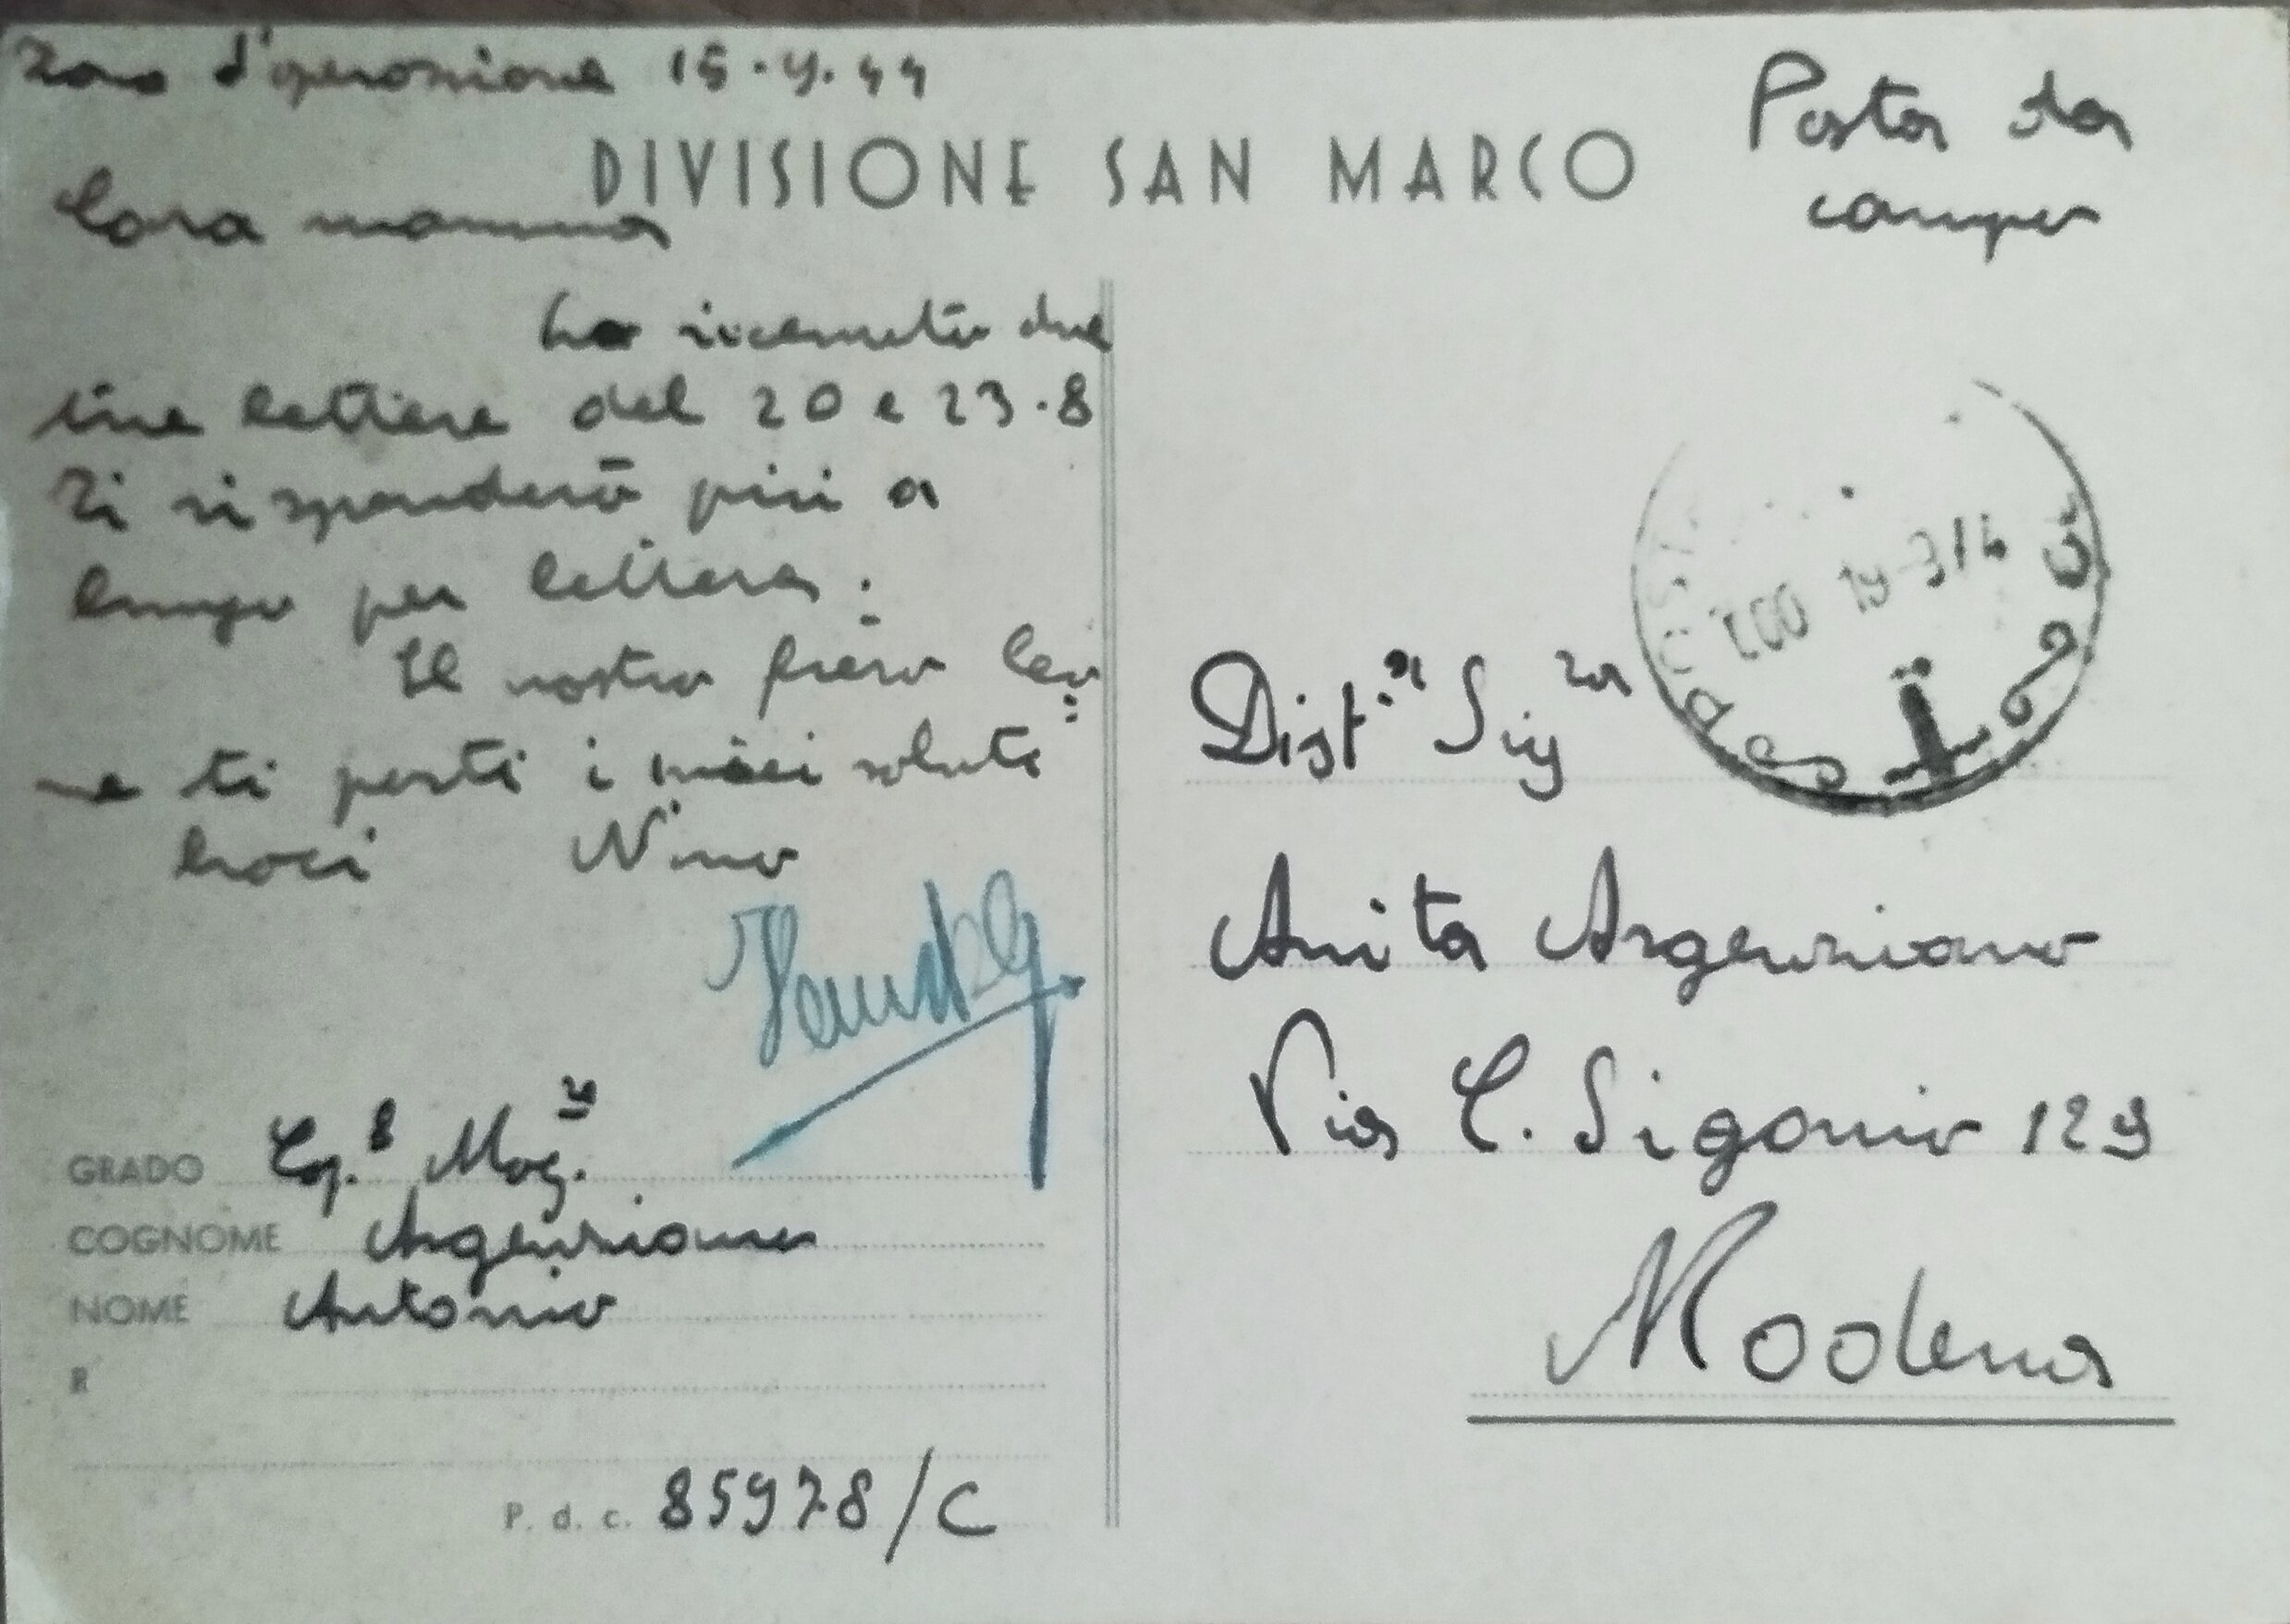 Zona d'operazione 15.9.44
DIVISIONE SAN MARCO
Posta da
campo
Cara mamma
ho ricevuto due
tue lettere del 20 e 23.8
Ti risponderò più a
lungo per lettera.
Il nostro fiero leo
ne ti porti i miei saluti
baci Nino
GRADO Cap.e Mag.
COGNOME Argenziano
NOME Antonio
R
P. d. c. 85978/C
Dist.a Sig ra
Anita Argenziano
Via C. Sigonio 129
Modena